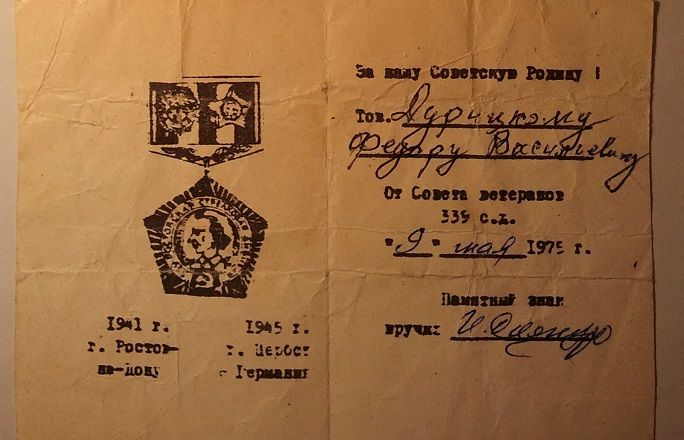 За нашу Советскую Родину !
Тов. Дурицкому
Федору Васильевичу
От Совета ветеранов
339 с.д.
"9" мая 1975 г.
Памятный знак
вручил
1941 г.
г. Ростов-
на-Дону
1945 г.
г. Цербст
Германия